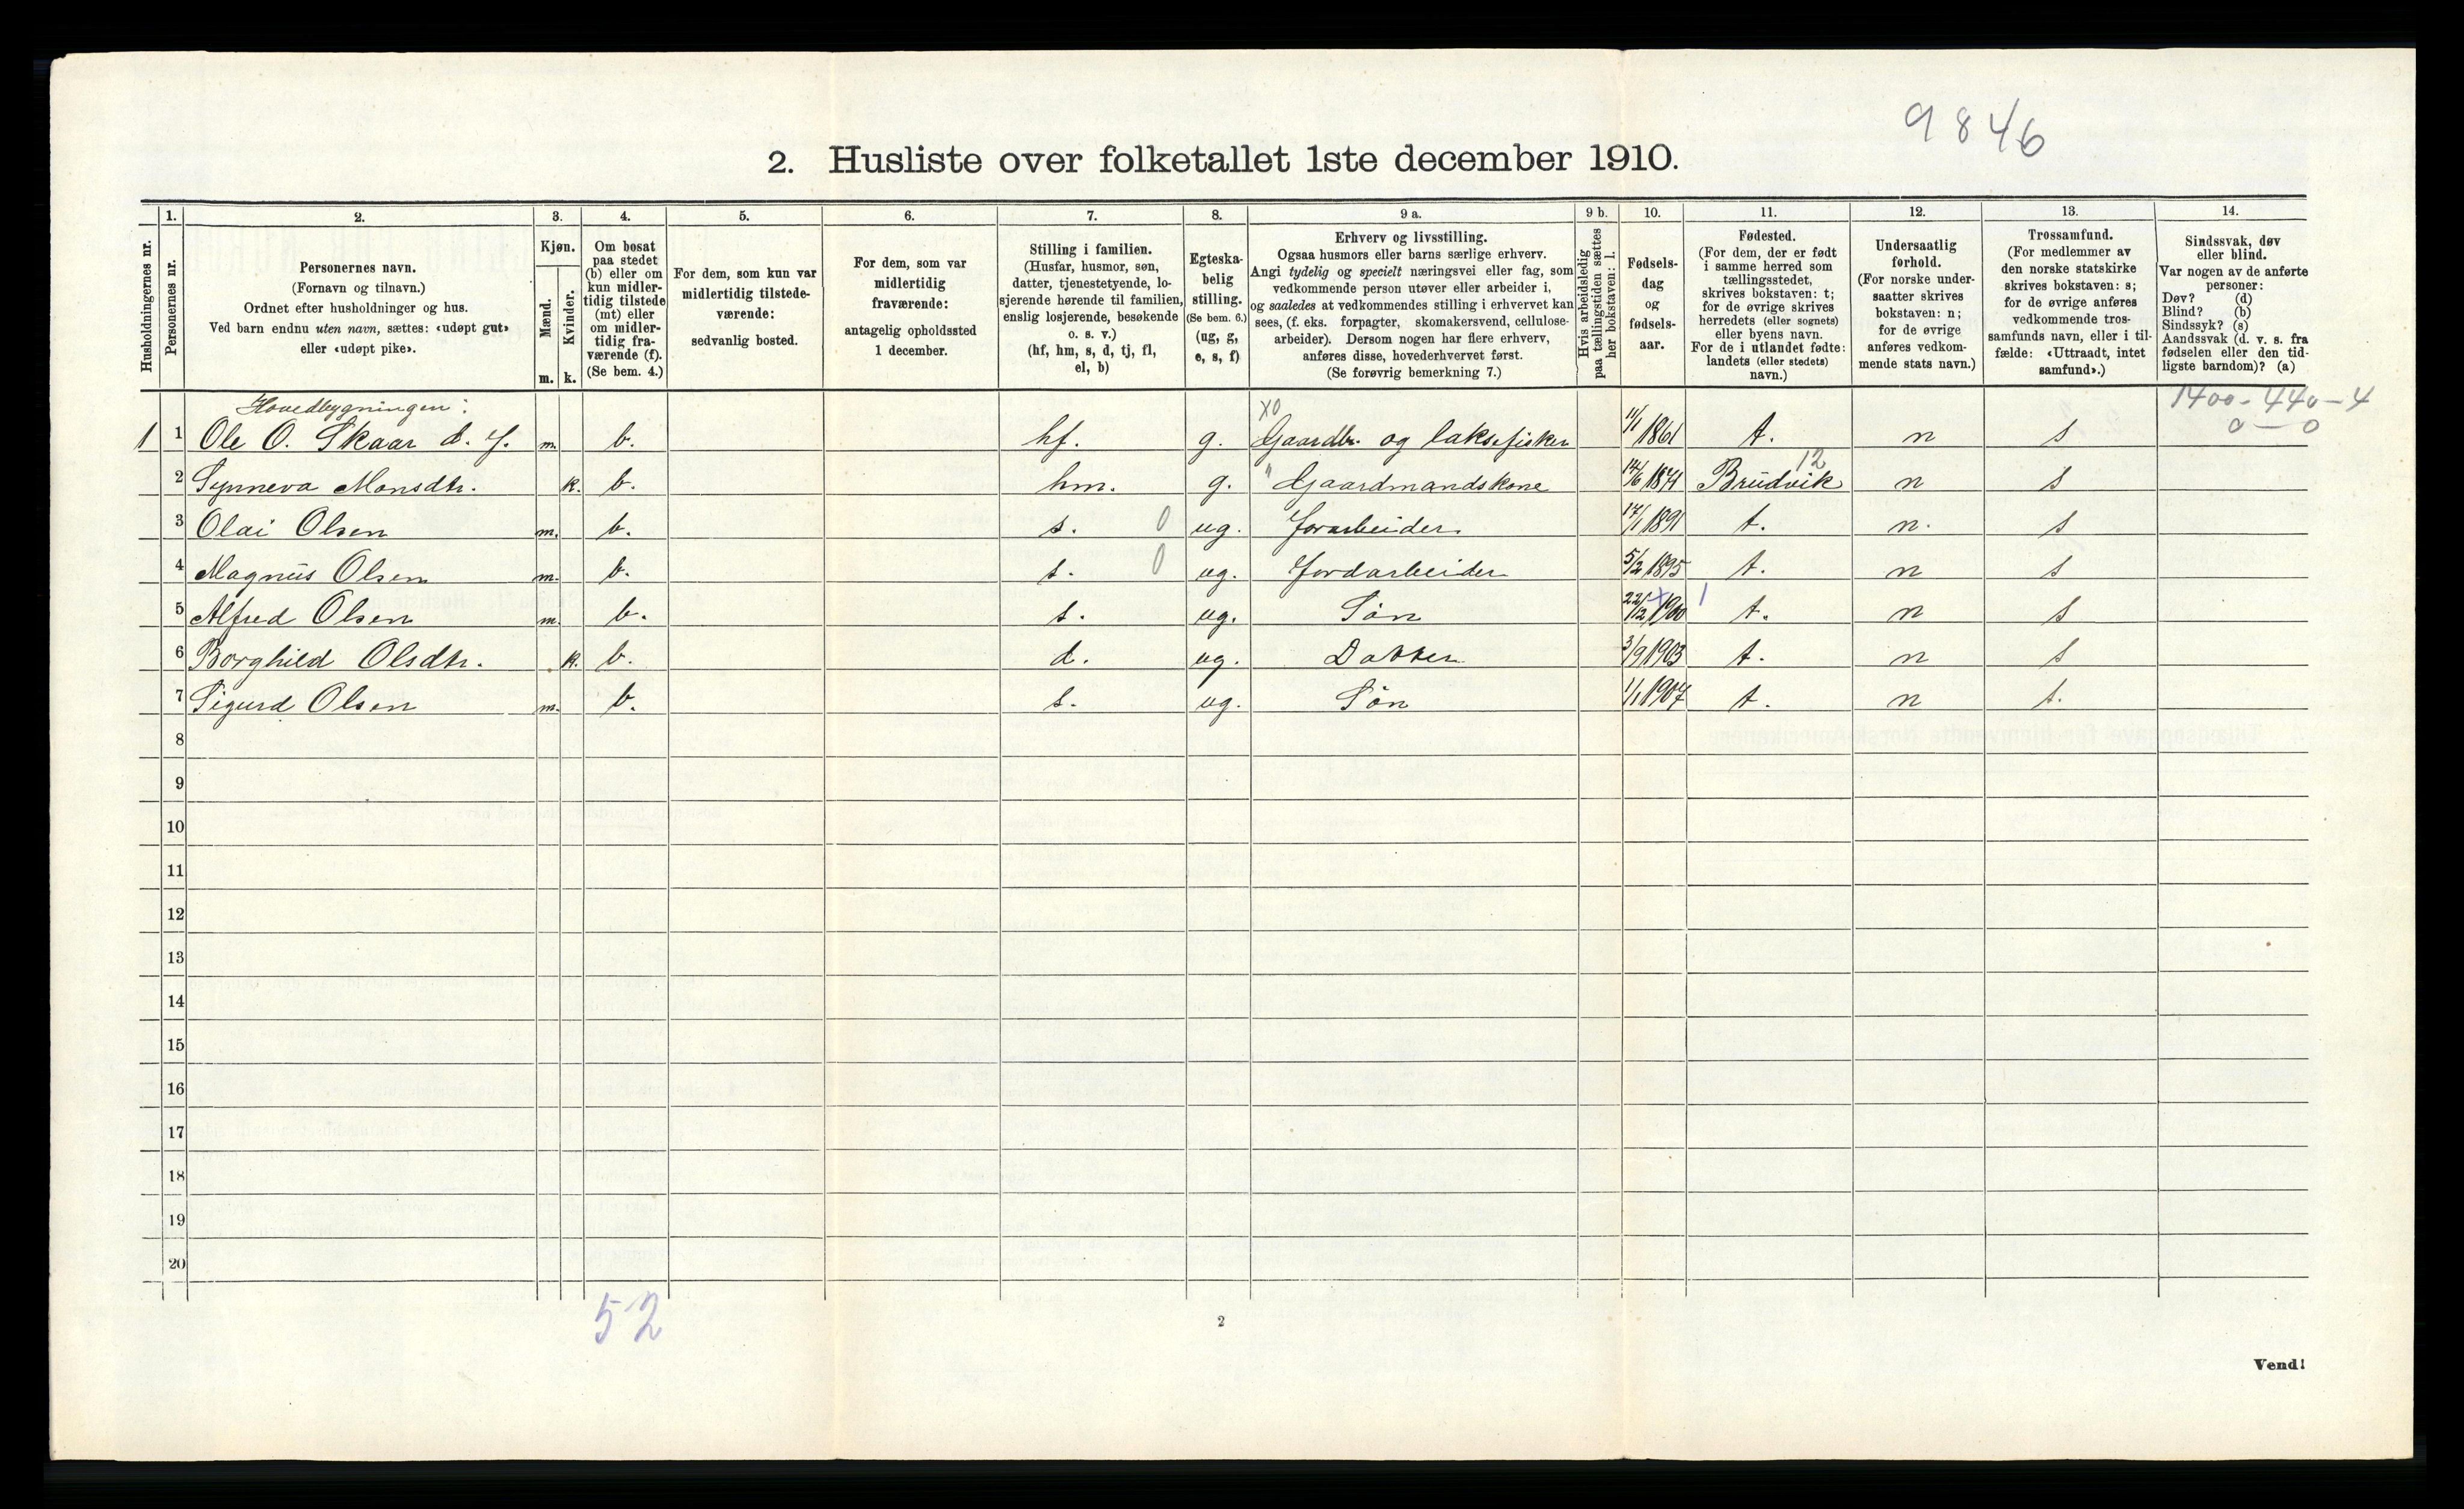 9846
2. Husliste over folketallet 1ste december 1910.
Husholdningernes nr.
1.
Personernes nr.
2.
Personernes navn.
(Fornavn og tilnavn.)
Ordnet efter husholdninger og hus.
Ved barn endnu uten navn, sættes: «udøpt gut»
eller «udøpt pike».
3.
Kjøn.
Mænd.
Kvinder.
m. k.
4.
Om bosat
paa stedet
(b) eller om
kun midler-
tidig tilstede
(mt) eller
om midler-
tidig fra-
værende (f).
(Se bem. 4.)
5.
For dem, som kun var
midlertidig tilstede-
værende:
sedvanlig bosted.
6.
For dem, som var
midlertidig
fraværende:
antagelig opholdssted
1 december.
7.
Stilling i familien.
(Husfar, husmor, søn,
datter, tjenestetyende, lo-
sjerende hørende til familien,
enslig losjerende, besøkende
o. s. v.)
(hf, hm, s, d, tj, fl,
el, b)
8.
Egteska-
belig
stilling.
(Se bem. 6.)
(ug, g,
e, s, f)
9 a.
Erhverv og livsstilling.
Ogsaa husmors eller barns særlige erhverv.
Angi tydelig og specielt næringsvei eller fag, som
vedkommende person utøver eller arbeider i,
og saaledes at vedkommendes stilling i erhvervet kan
sees, (f. eks. forpagter, skomakersvend, cellulose-
arbeider). Dersom nogen har flere erhverv,
anføres disse, hovederhvervet først.
(Se forøvrig bemerkning 7.)
9 b.
Hvis arbeidsledig
paa tællingstiden sættes
her bokstaven: l.
10.
Fødsels-
dag
og
fødsels-
aar.
11.
Fødested.
(For dem, der er født
i samme herred som
tællingsstedet,
skrives bokstaven: t;
for de øvrige skrives
herredets (eller sognets)
eller byens navn.
For de i utlandet fødte:
landets (eller stedets)
navn.)
12.
Undersaatlig
forhold.
(For norske under-
saatter skrives
bokstaven: n;
for de øvrige
anføres vedkom-
mende stats navn.)
13.
Trossamfund.
(For medlemmer av
den norske statskirke
skrives bokstaven: s;
for de øvrige anføres
vedkommende tros-
samfunds navn, eller i til-
fælde: «Uttraadt, intet
samfund».)
14.
Sindssvak, døv
eller blind.
Var nogen av de anførte
personer:
Døv? (d)
Blind? (b)
Sindssyk? (s)
Aandssvak (d. v. s. fra
fødselen eller den tid-
ligste barndom)? (a)
Hovedbygningen: X0 1400-440-4
1 1 Ole O. Skaar d. y. m. b. hf. g. Gaardbr. og laksefisker 11/1 1861 t. n s 0 — 0
2 Synneva Monsdtr. k. b. hm. g. " Gaardmandskone 14/6 1871 Brudvik 12 n s
3 Olai Olsen m. b. s. 0 ug. Jorarbeider 17/1 1891 t. n. s
4 Magnus Olsen m. b. s. 0 ug. Jordarbeider 5/2 1895 t. n s
5 Alfred Olsen m. b. s. ug. Søn 22/12 1900 1 t. n s
6 Borghild Olsdtr. k. b. d. ug. Datter 3/9 1903 t. n s
7 Sigurd Olsen m. b. s. ug. Søn 1/1 1907 t. n s.
8
9
10
11
12
13
14
15
16
17
18
19
20
52
2
Vend!